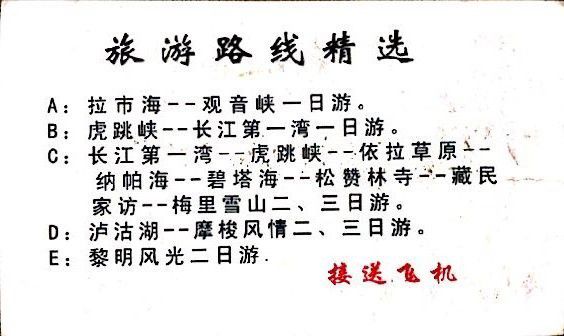 旅游路线精选
A：拉市海--观音峡一日游。
B：虎跳峡--长江第一湾一日游。
C：长江第一湾--虎跳峡--依拉草原--
纳帕海--碧塔海--松赞林寺--藏民
家访--梅里雪山二、三日游。
D：泸沽湖--摩梭风情二、三日游。
E：黎明风光二日游.
接送飞机